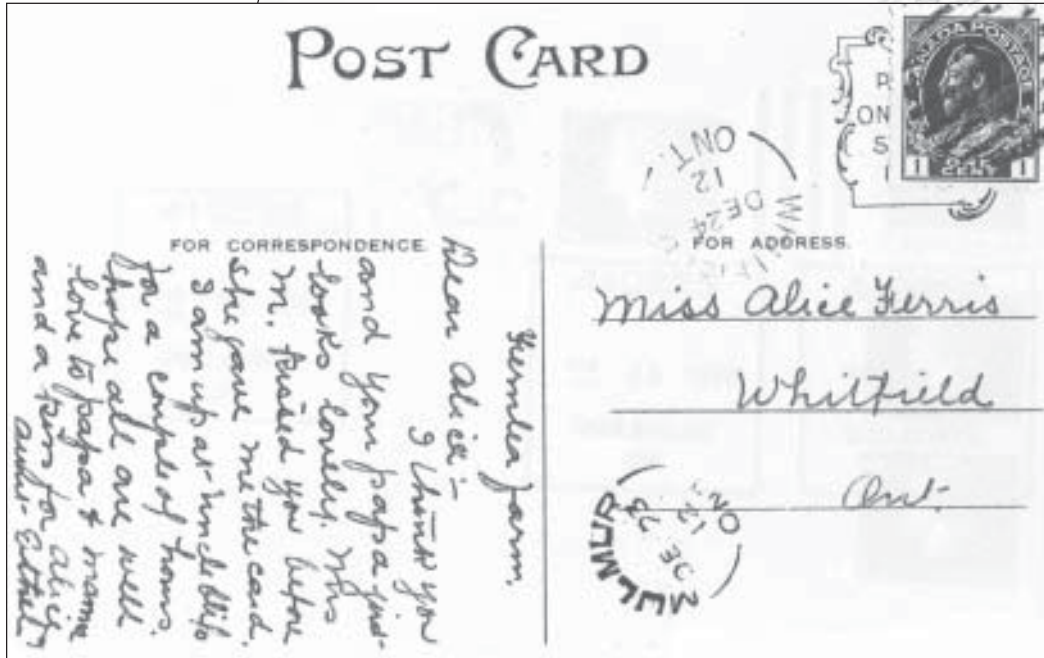 POST CARD
CANADA POSTAGE
1 ONE CENT 1
ON
S
12
ONT.
DE 24
FOR CORRESPONDENCE.
FOR ADDRESS.
Miss Alice Ferris
Whitfield
Ont.
MULMUR
DE 23
12
ON
Fernlea Farm.
Dear Alice:-
I think you
and your papa just
looks lovely. Mrs
M. kissed you before
she gave me the card.
I am up at Uncle
for a couple of hours.
hope all are well
love to papa & mama
and a kiss for Alice
Aunt Ethel